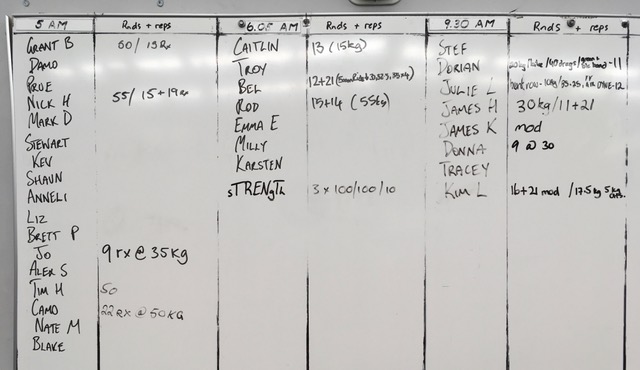 5 AM Rnds + reps 6.05 AM Rnds + reps 9.30 AM Rnds + reps
GRANT B 60/15 Rx
DAMO
PROE
NICK H 55/15+19Rx
MARK D
STEWART
KEV
SHAUN
ANNELI
LIZ
BRETT P
JO 9 rx @ 35kg
ALEX S
TIM H 50
CAMO 22 RX @ 50KG
NATE M
BLAKE
CAITLIN 13 (15kg)
TROY
BEL 12+21
ROD 15+14 (55kg)
EMMA E
MILLY
KARSTEN
STRENgTh 3 x 100/100/10
STEF
DORIAN
JULIE L
JAMES H 30kg/11+21
JAMES K mod
DONNA 9 @ 30
TRACEY
KIM L 16+21 mod /17.5kg 5kg